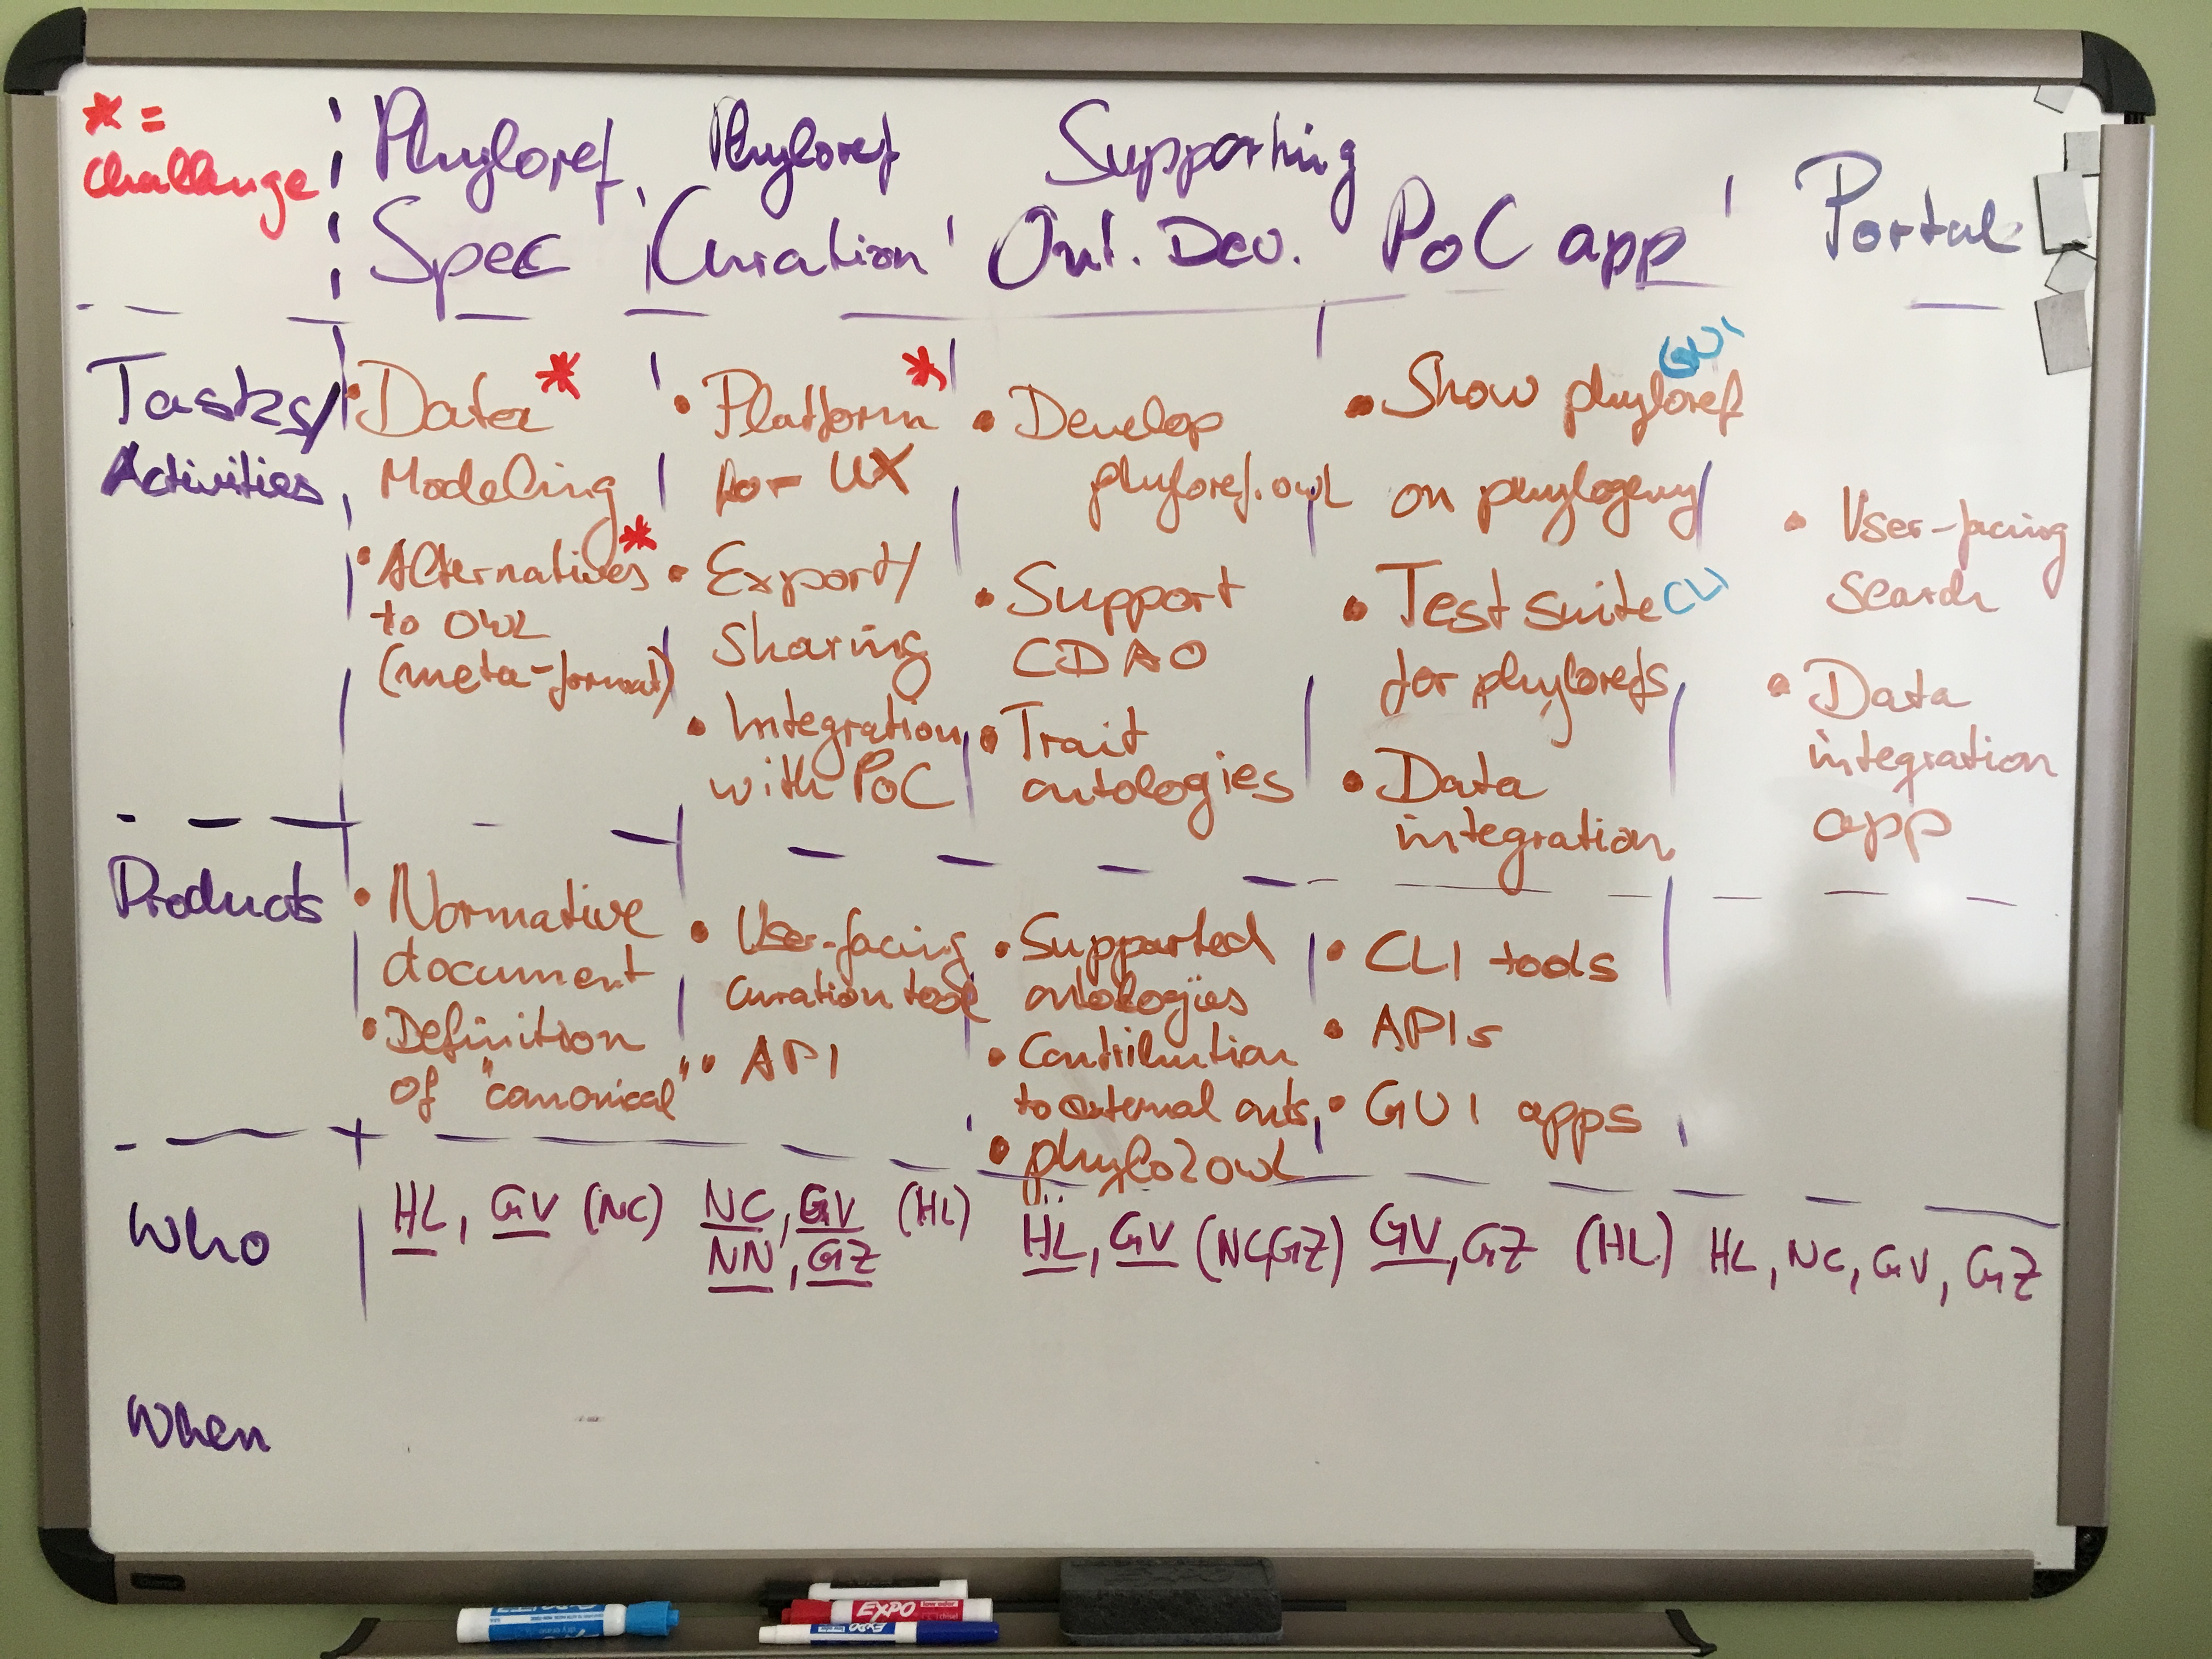 * =
challenge
Phyloref
Spec
Phyloref
Curation
Supporting
Ont. Dev.
PoC app
Portal
Tasks/
Activities
• Data *
Modeling
• Alternatives *
to OWL
(meta-format)
• Platform *
for UX
• Export/
sharing
• Integration
with PoC
• Develop
phyloref.owl
• Support
CDAO
• Trait
ontologies
• Show phyloref GUI
on phylogeny
• Test suite CLI
for phylorefs
• Data
integration
• User-facing
search
• Data
integration
app
Products
• Normative
document
• Definition
of "canonical"
• User-facing
curation tool
• API
• Supported
ontologies
• Contribution
to external onts.
• phylo2owl
• CLI tools
• APIs
• GUI apps
Who
HL, GV (NC)
NC, GV (HL)
NN, GZ
HL, GV (NC, GZ)
GV, GZ (HL)
HL, NC, GV, GZ
When
EXPO
EXPO